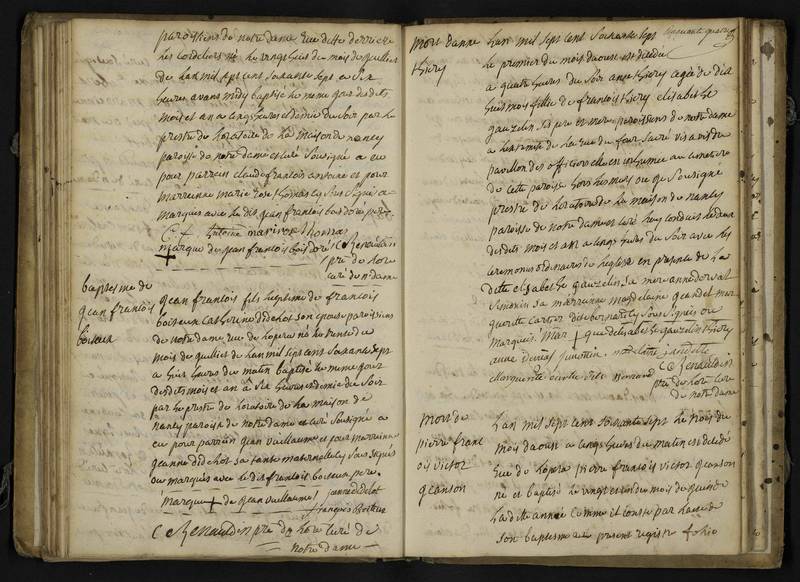 paroissiens de notre dame rue ditte derriere
les cordeliers né le vingt huit du mois de juillet
de lan mil sept cent soixante sept a six
heures avant midy baptisé le meme jour desdits
mois et an a cinq heures et demie du soir par le
prestre de loratoire de la maison de nancy
paroisse de notre dame et curé soussigné a eu
pour parrein claude francois antoine et pour
marrienne marie rose thomas
marques avec le dit jean francois boisdoré pere
C f Antoine marirose thomas
marque de jean francois boisdoré C C Renauldin
ptre de lore
curé de n. dame
baptesme de
jean francois
boiteux
jean francois fils legitime de francois
boiteux catherine didelot son epouse paroissiens
de notre dame rue de lopera né le trente du
mois de juillet de lan mil sept cent soixante sept
a huit heures du matin baptisé le meme jour
desdits mois et an a six heures et demie du soir
par le prestre de loratoire de la maison de
nancy paroisse de notre dame et curé soussigné a
eu pour parrein jean vuillaume et pour marrienne
jeanne didelot sa tante maternelle soussignés
ou marqués avec le dit francois boiteux pere
marque de jean vuillaume jeanne didelot
françois Boiteux
C C Renauldin ptre de lore curé de
notre dame
mort danne
thiery
lan mil sept cent soixante sept
le premier du mois daoust est decedée
a quatre heures du soir anne thiery agée de dix
huit mois fille de francois thiery elisabethe
gauzelin ses pere et mere paroissiens de notre dame
a lextremité de la rue du four sacré vis a vis du
pavillon des officiers elle en inhumée au cimetiere
de cette paroisse hors les murs ou je soussigné
prestre de loratoire de la maison de nancy
paroisse de notre dame et curé lay conduit le deux
desdits mois et an a cinq heures du soir avec les
ceremonies ordinaires de leglise en presence de la
ditte elisabethe gauzelin sa mere anne dorval
simonin sa marrienne magdelaine jeandel mar
guerithe cartier dite bernard soussignés ou
marqués. Mar que delisabethe gauzelin thiery
C C Renauldin
ptre de lore curé
de notre dame
mort de
pierre franc
ois victor
jeanson
lan mil sept cent soixante sept le trois du
mois daoust a cinq heures du matin est decedé
rue de lopera pierre francois victor jeanson
né et baptisé le vingt du mois de juin de
ladite année comme il conste par lacte de
son baptesme au present registre folio